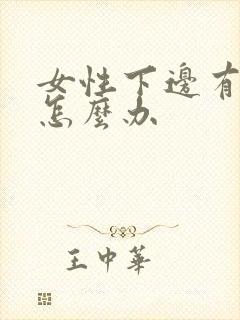 女性下邊有
怎麼办
王中華